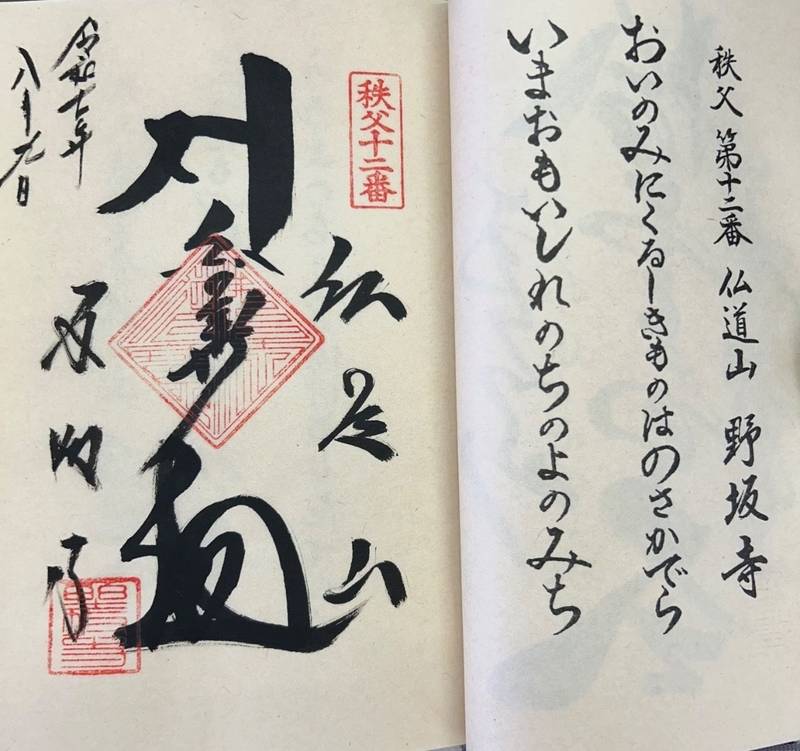 秩父 第十二番 仏道山 野坂寺
おいのみにくるしきものはのさかでら
いまおもいしれのちのよのみち
秩父十二番
仏道山
野坂寺
令和七年
八月九日